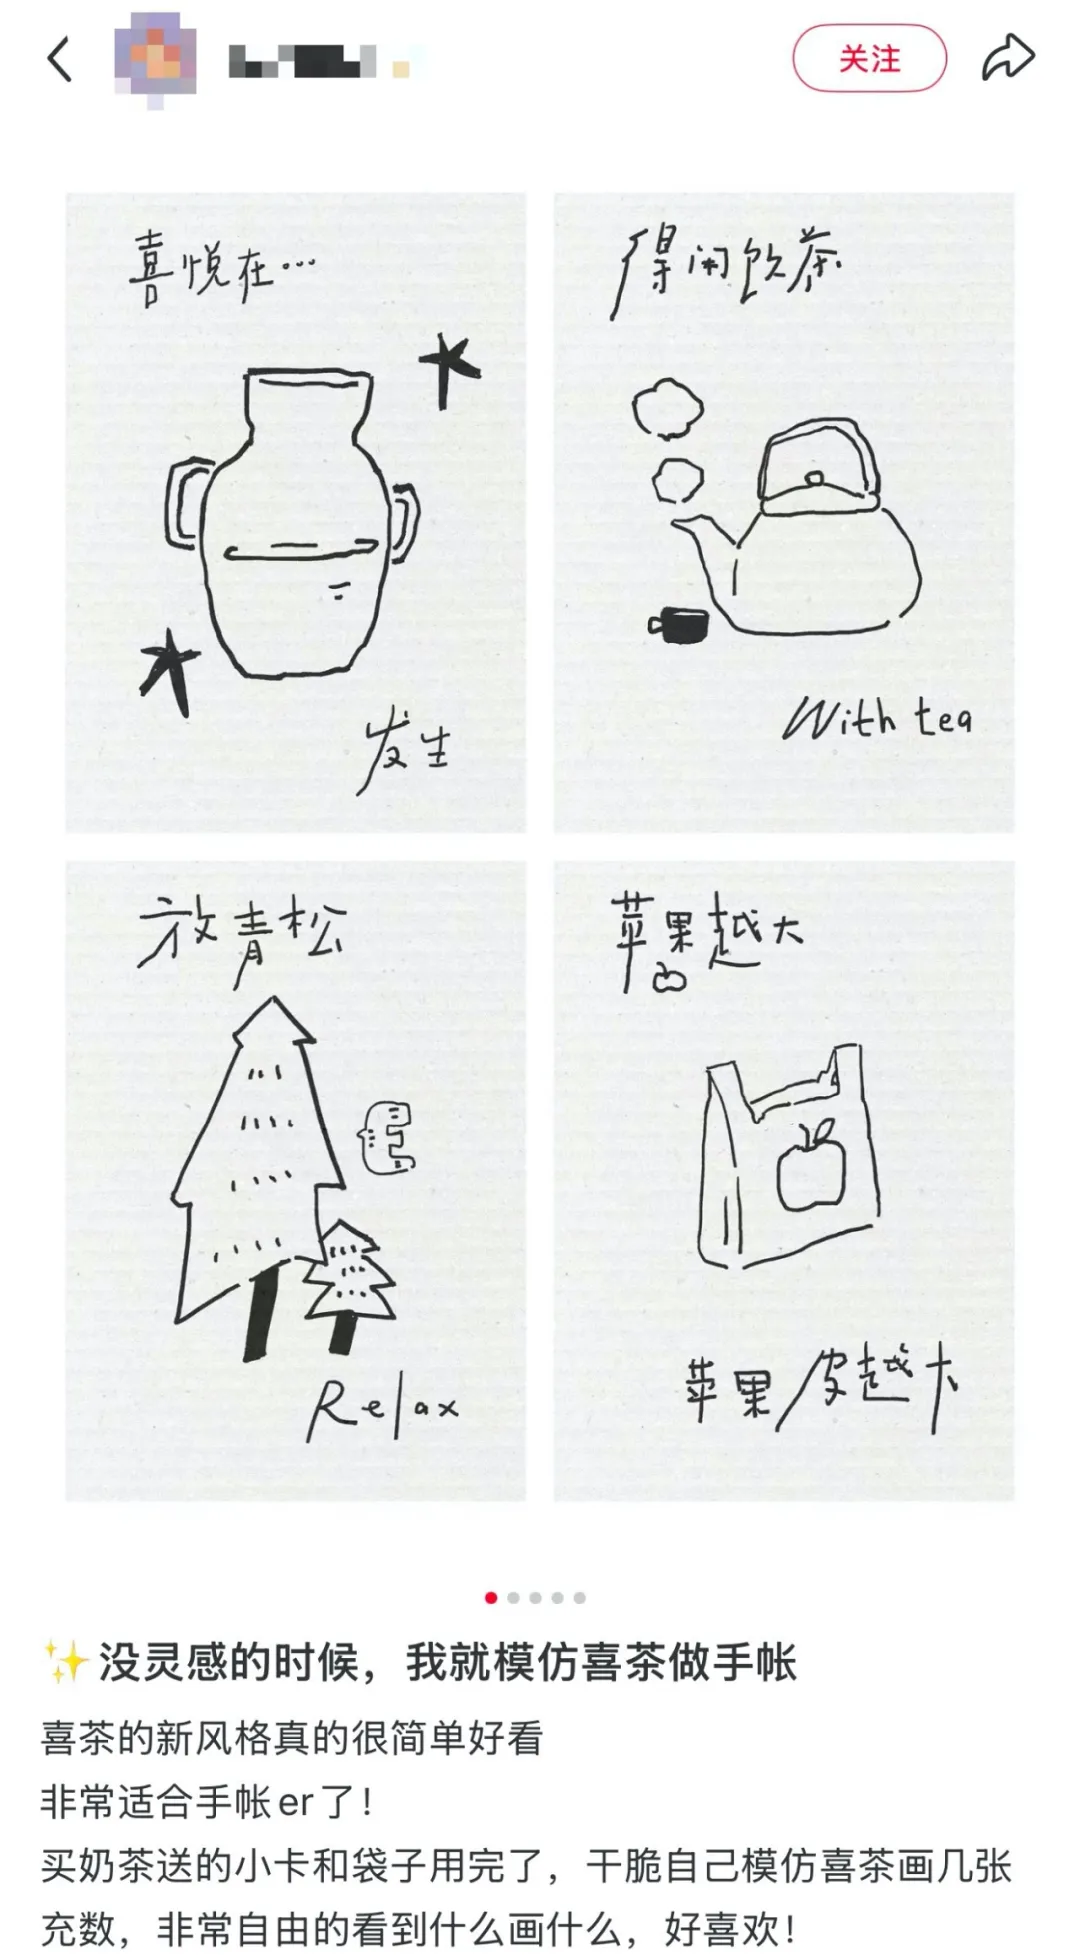 关注
喜悦在…
发生
得闲饮茶
With tea
放青松
Relax
苹果越大
苹果皮越大
✨没灵感的时候，我就模仿喜茶做手帐
喜茶的新风格真的很简单好看
非常适合手帐er了！
买奶茶送的小卡和袋子用完了，干脆自己模仿喜茶画几张
充数，非常自由的看到什么画什么，好喜欢！